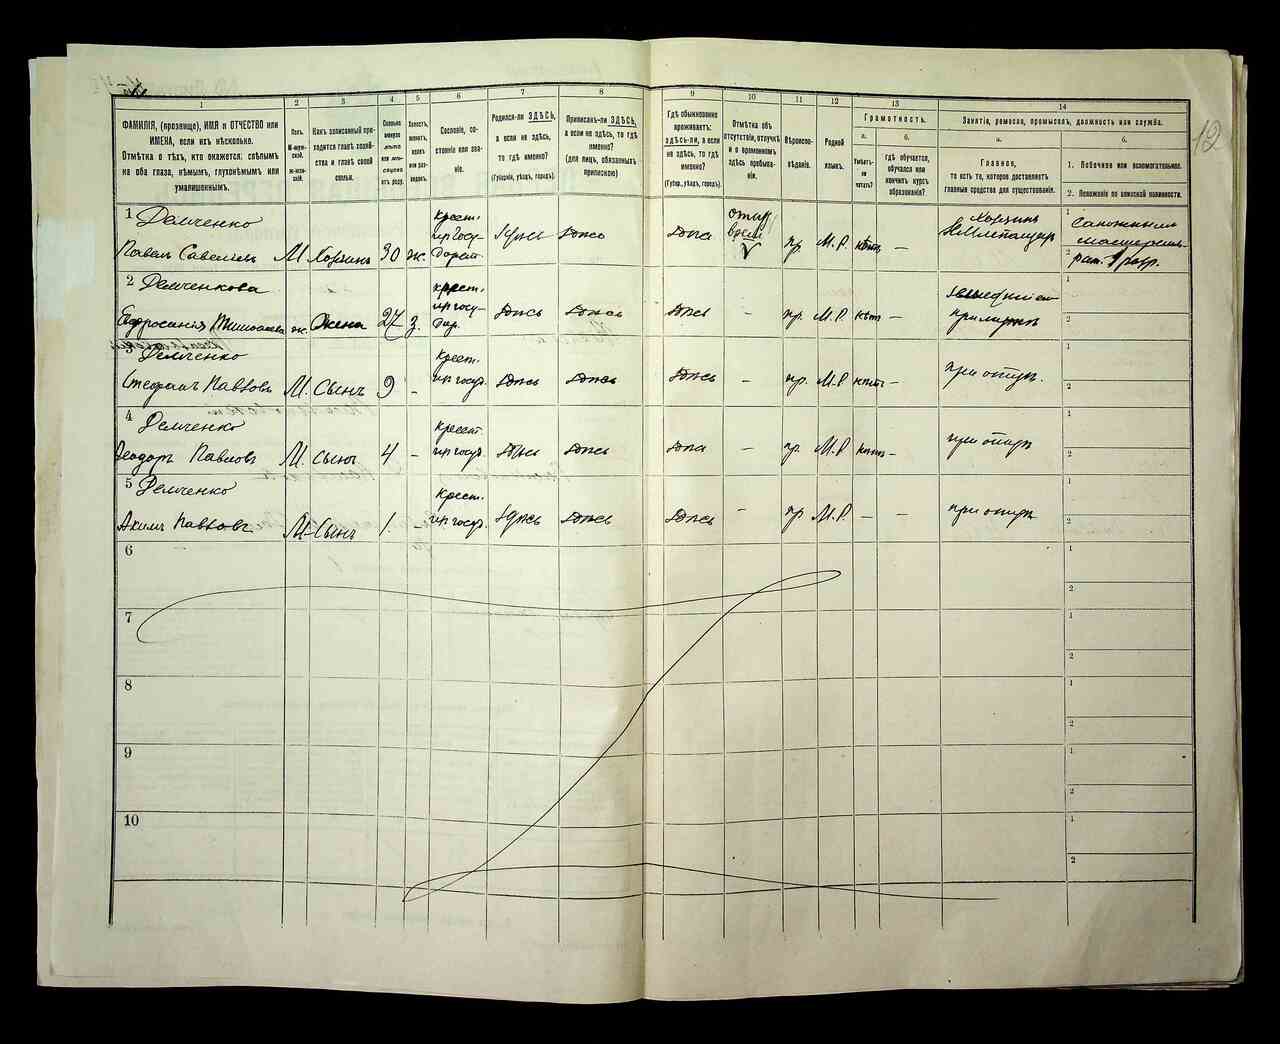 12
1 2 3 4 5 6 7 8 9 10 11 12 13 14
ФАМИЛІЯ, (прозвище), ИМЯ и ОТЧЕСТВО или
ИМЕНА, если ихъ нѣсколько.
Отмѣтка о тѣхъ, кто окажется: слѣпымъ
на оба глаза, нѣмымъ, глухонѣмымъ или
умалишеннымъ.
Полъ.
М-мужской.
Ж-женскій.
Какъ записанный приходится главѣ хозяйства и главѣ своей
семьи.
Сколько
минуло
лѣтъ
или мѣсяцевъ
отъ роду.
Холостъ,
женатъ,
вдовъ
или разведенъ.
Сословіе, состояніе или званіе.
Родился-ли ЗДѢСЬ,
а если не здѣсь,
то гдѣ именно?
(Губернія, уѣздъ, городъ).
Приписанъ-ли ЗДѢСЬ,
а если не здѣсь, то гдѣ
именно?
(для лицъ, обязанныхъ
припискою)
Гдѣ обыкновенно
проживаетъ:
здѣсь-ли, а если
не здѣсь, то гдѣ
именно?
(Губер., уѣздъ, городъ).
Отмѣтка объ
отсутствіи, отлучкѣ
и о временномъ
здѣсь пребываніи.
Вѣроисповѣданіе.
Родной
языкъ.
Грамотность.
а.
Умѣетъ-ли
читать?
б.
Гдѣ обучается,
обучался или
кончилъ курсъ
образованія?
Занятіе, ремесло, промыселъ, должность или служба.
а.
Главное,
то есть то, которое доставляетъ
главныя средства для существованія.
б.
1. Побочное или вспомогательное.
2. Положеніе по воинской повинности.
1 Демченко
Павелъ Савельевъ М. Хозяинъ 30 ж. Крест. изъ Госу- Здѣсь Здѣсь Здѣсь пр. М.Р. нѣтъ –
2 Демченкова
Евфросинія ж. Жена 27 з. Крест. Здѣсь Здѣсь Здѣсь – пр. М.Р. нѣтъ –
3 Демченко
Стефанъ Павловъ М. Сынъ 9 – Крест. Здѣсь Здѣсь Здѣсь – пр. М.Р нѣтъ –
4 Демченко
Ѳеодоръ Павловъ М. Сынъ 4 – Крест. Здѣсь Здѣсь Здѣсь – пр. М.Р нѣтъ – при отцѣ
5 Демченко
Акимъ Павловъ М Сынъ 1. – Крест. Здѣсь Здѣсь Здѣсь – пр М.Р. – – при отцѣ
6
7
8
9
10